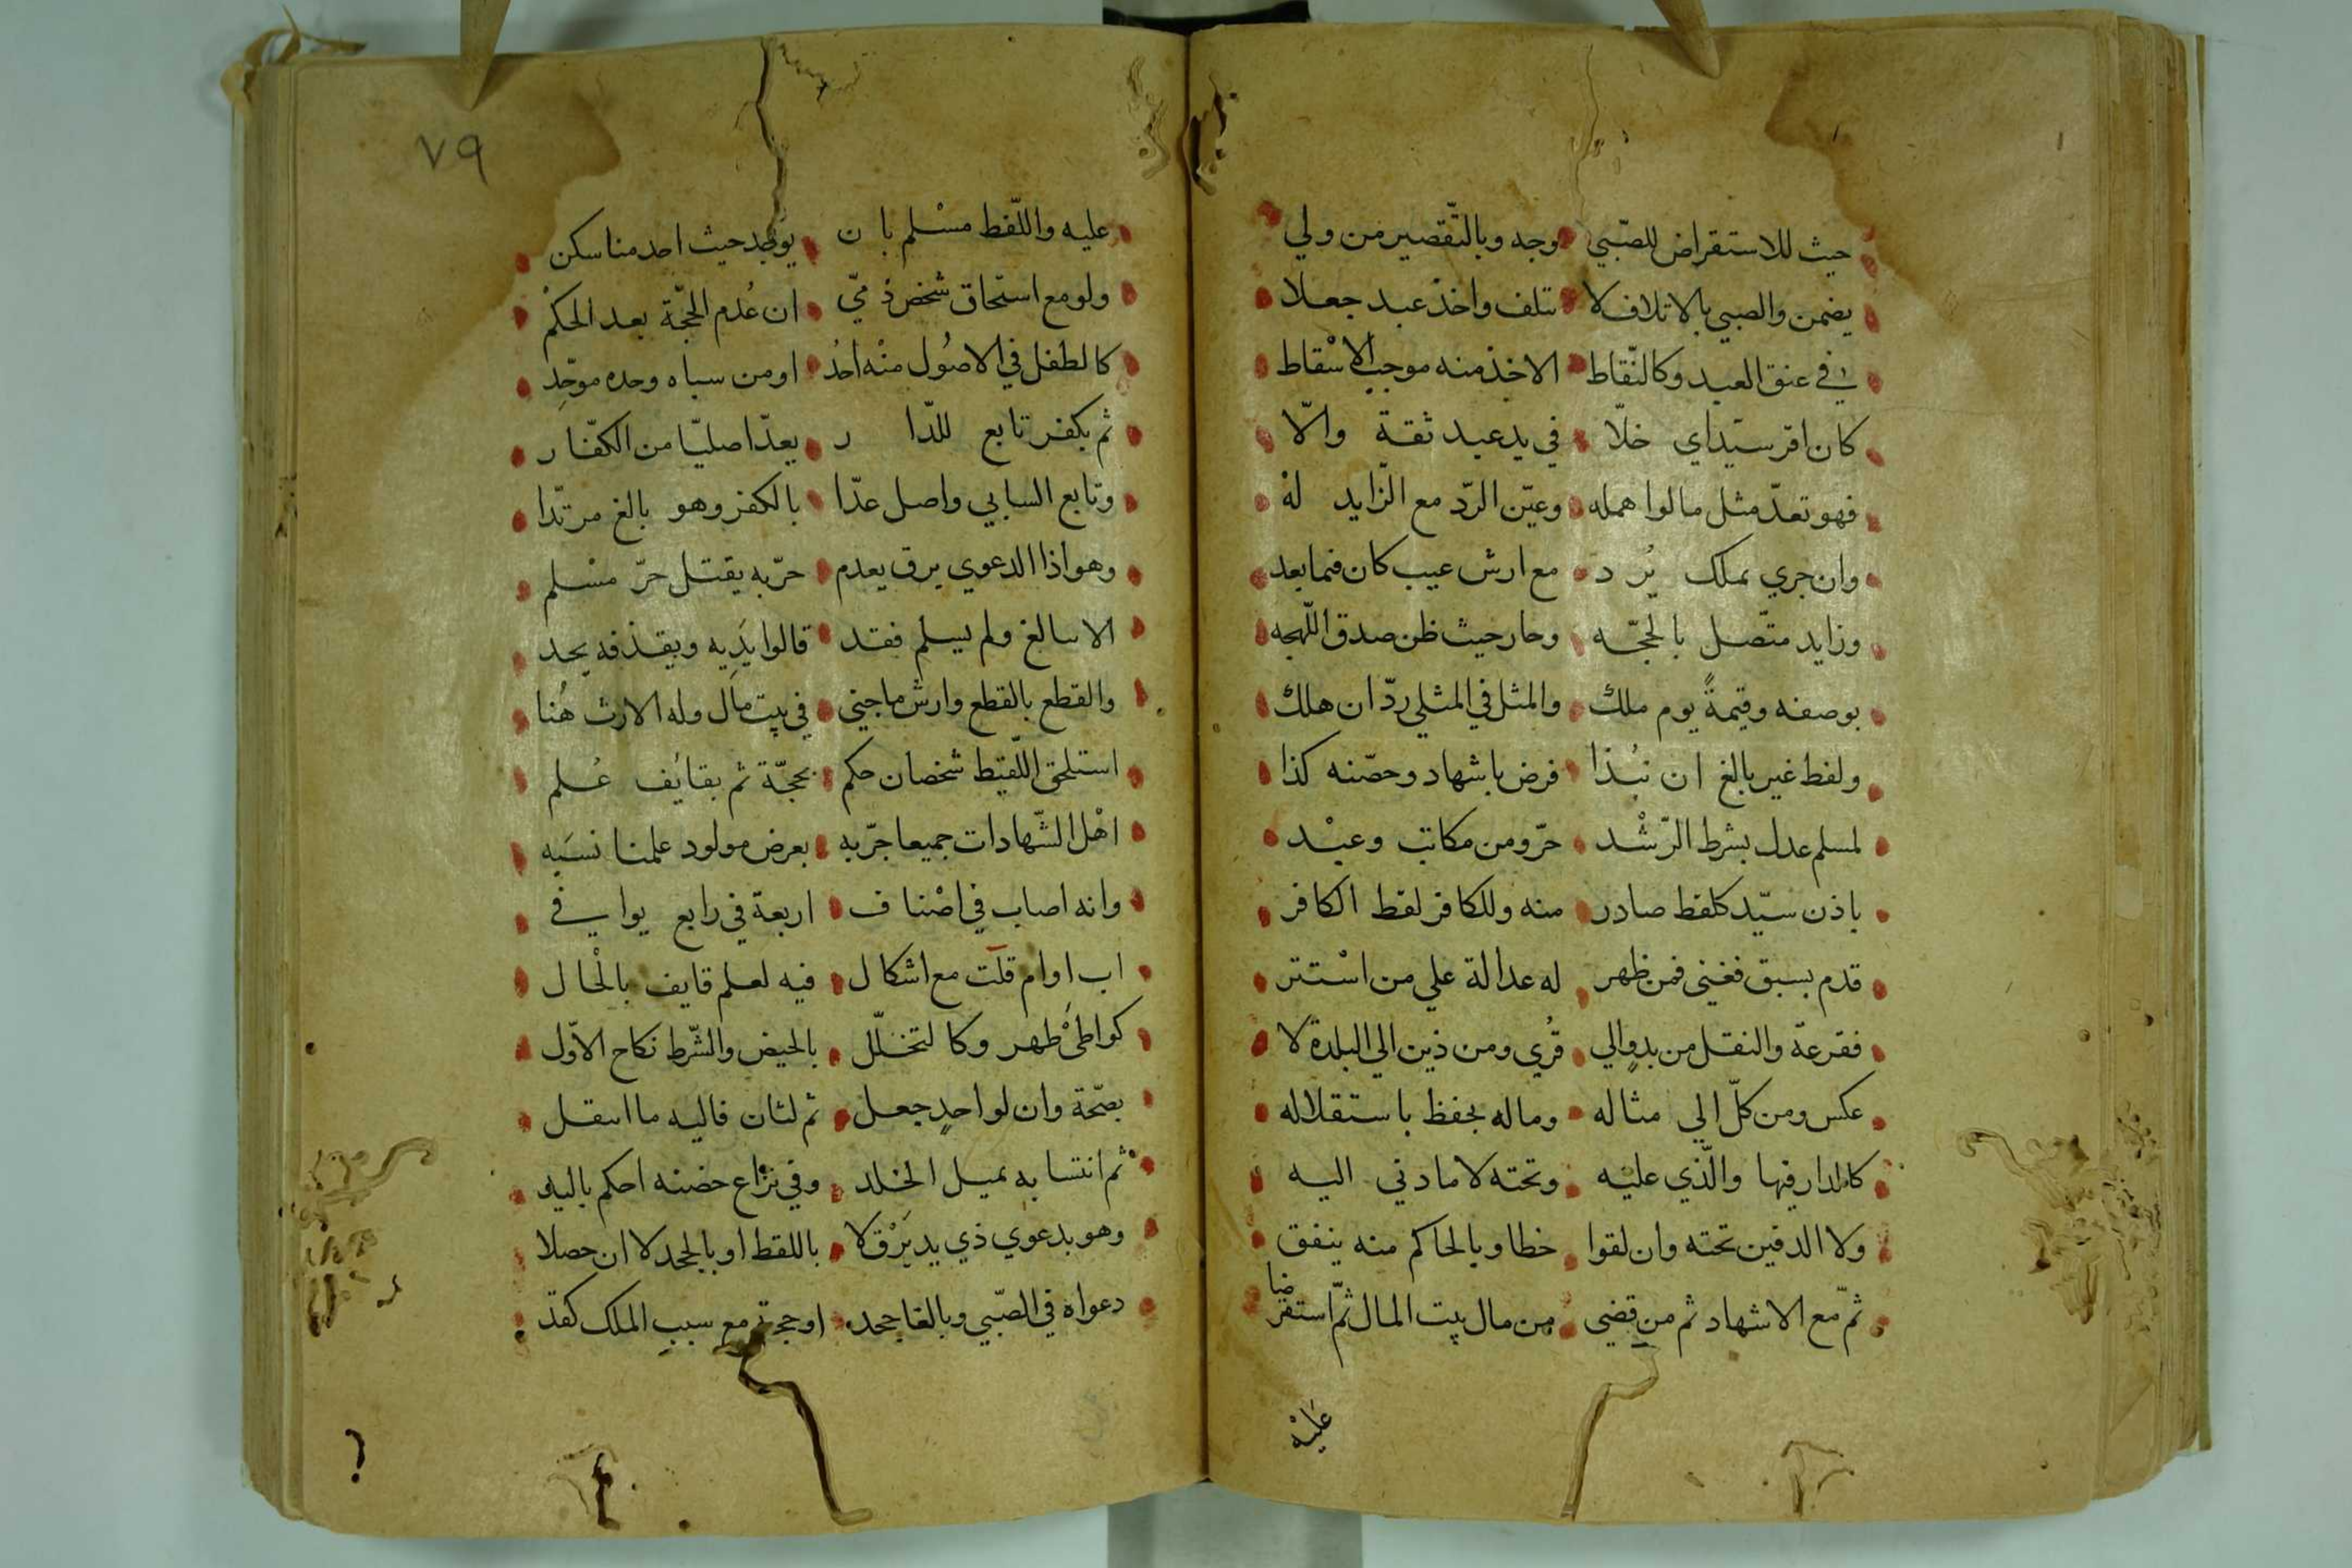 حيث للاستقراض للصّبي وجه وبالتّقصير من ولي
يضمن والصبي بالاتلاف لا تتلف واخذ عبد جعلا
في عنق العبد وكالتّقاط الاخذ منه موجب الاسْقاط
كان اقر سيّد اي خلّا في يد عبد ثقة والّا
فهو تعدّ مثل ما لوا همله وعيّن الردّ مع الزّايد لهْ
وان جري بملك يُرد مع ارش عيب كان فيما بعد
وزايد متّصل بالحجّه وحار حيث ظن صدق اللّهجه
بوصفه وقيمةً يوم ملك والمثل في المثلي ردّ ان هلك
ولفط غير بالغ ان نبُذا فرض باشهاد وحضنه كذا
لمسلم عدل بشرط الرّشْد حرّ ومن مكاتب وعبْد
باذن سيّد كلقط صادر منه وللكافر لقط الكافر
قدم بسبق فغني فمن ظهر له عدالة علي من اسْتتر
فقرعة والنقل من بدوٍ الي قُري ومن ذين الي البلدة لا
عكس ومن كلّ الي مثاله وماله يحفظ باستقلاله
كالدار فيها والّذي عليْه وتحته لا ما دني اليه
ولا الدفين تحته وان لقوا خطا وبالحاكم منه ينفق
ثمّ مع الاشهاد ثم من قضي من مال بيت المال ثمّ استقرضا
عَليْه
٧٩
عليه واللّقط مسْلم بان يوجد حيث احد منا سكن
ولو مع استحاق شخص ذمّي ان عُدم الحجّة بعد الحكْم
كالطفل في الاصُول منْه احدُ او من سباه وحده موحّدِ
ثم بكفر تابع للدّار يعدّ اصليّا من الكفّار
وتابع السابي واصل عدّا بالكفر وهو بالغ مرتدّا
وهو اذا الدعوي برق يعدم حرّ به يقتل حرّ مسْلم
الا ببالغ ولم يسلم فقد قالوا يَدِيه وبقذفه يحد
والقطع بالقطع وارش ما جني في بيت مال وله الارث هُنا
استلحق اللّقيط شخصان حكم بحجّة ثم بقائف عُلم
اهْل الشّهادات جميعا جرّبه بعرض مولود علمنا نسَبه
وانه اصاب في اصْناف اربعة في رابع يوافي
اب او ام قلت مع اشكال فيه لعلم قايف بالْحال
كواطئ طهر وكالتخلّل بالحيض والشّرط نكاح الاوّل
بصّحة وان لواحدٍ جعل ثم لثان فاليه ما انتقل
ثم انتسابه بميل الخلد وفي نزْاع حضنه احكم باليد
وهو بدعوي ذي يد يَرْق لا باللقط او بالجحد لا ان حصلا
دعواه في الصّبي وبالغا جحد او حجة مع سبب الملك كقد